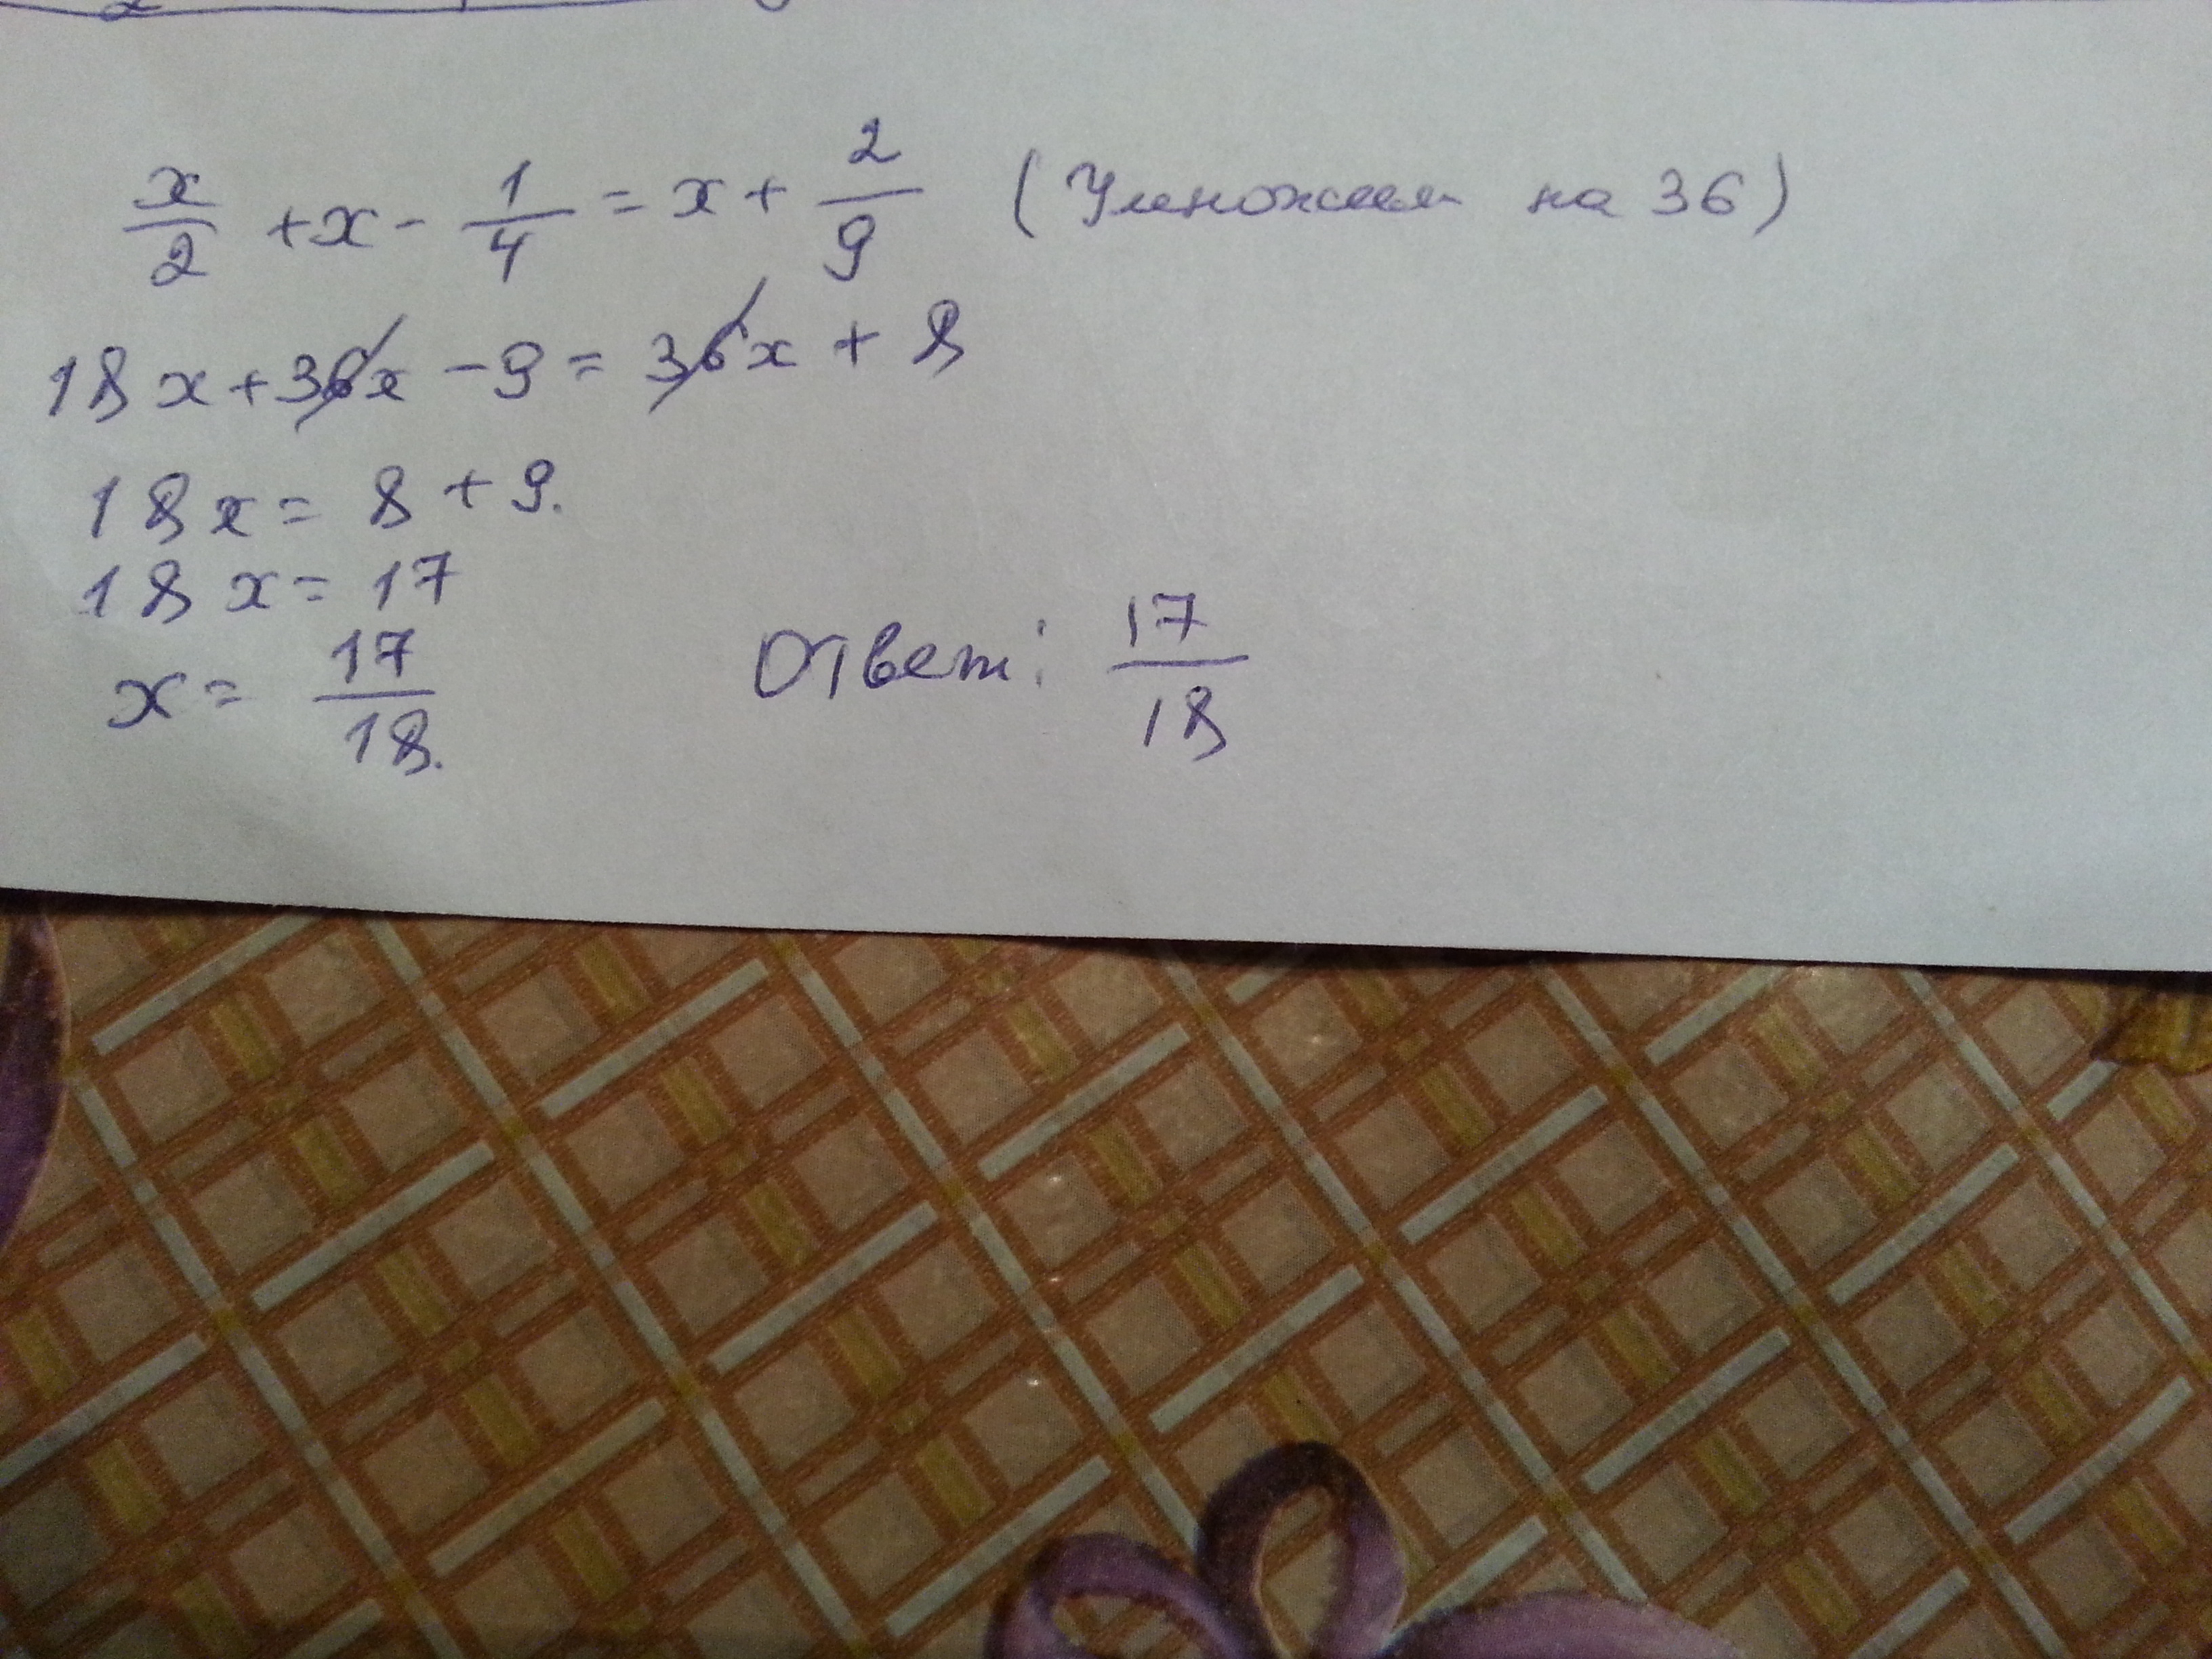 x/2 + x - 1/4 = x + 2/9 (Умножим на 36)
18x + 36x - 9 = 36x + 8
18x = 8 + 9.
18x = 17
x = 17/18.
Ответ: 17/18